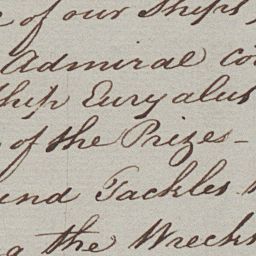 of our Ships,
Admiral co
Ship Euryalus
of the Prizes -
and Tackles
the Wrecks